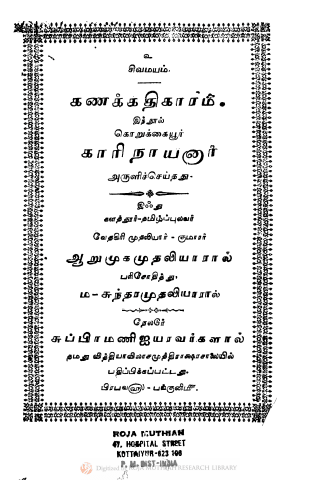 உ
சிவமயம்.
கணக்கதிகாரம்.
இந்நூல்
கொறுக்கையூர்
காரிநாயனார்
அருளிச்செய்தது.
இஃது
களத்தூர்-தமிழ்ப்புலவர்
வேதகிரி முதலியார் - குமாரர்
ஆறுமுகமுதலியாரால்
பரிசோதித்து,
ம-சுந்தரமுதலியாரால்
தேவூர்
சுப்பிரமணிஐயரவர்களால்
தமது வித்தியாவிலாசமுத்திராக்ஷரசாலையில்
பதிப்பிக்கப்பட்டது.
பிரபவ பங்குனி
ROJA MUTHIAH
47, HOSPITAL STREET
KOTTAIYUR-623 106
P. M. DIST-INDIA
Digitized by ROJA MUTHIAH RESEARCH LIBRARY